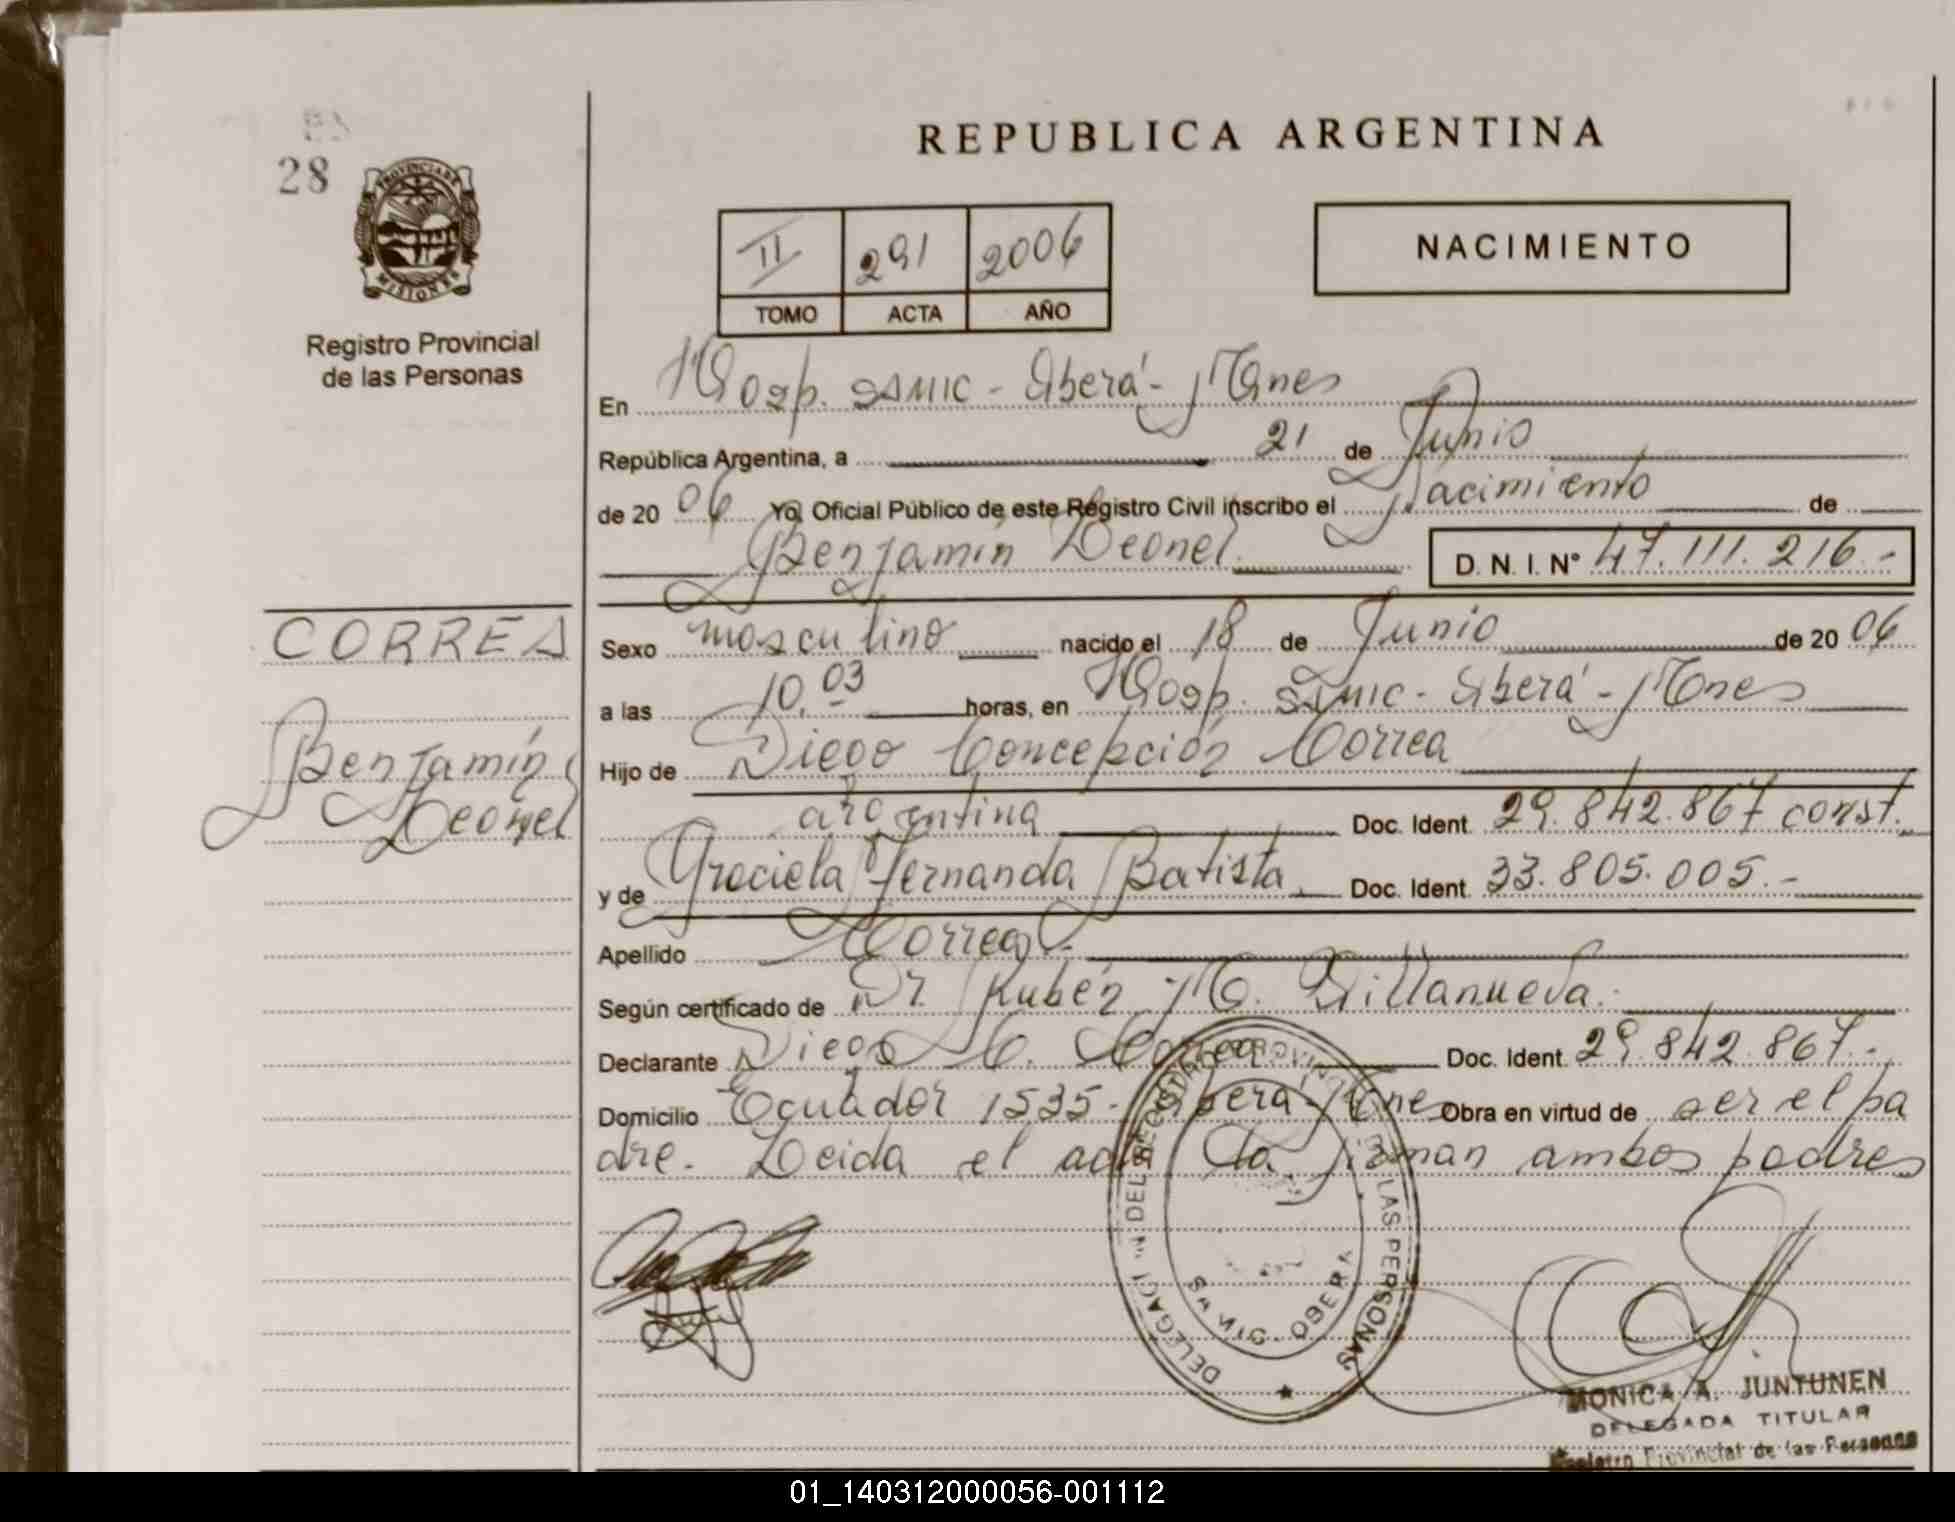 28
PROVINCIA DE
MISIONES
Registro Provincial
de las Personas
REPUBLICA ARGENTINA
II 291 2006
TOMO ACTA AÑO
NACIMIENTO
En Hosp. SAMIC - Oberá - Mnes
República Argentina, a 21 de Junio
de 2006 Yo, Oficial Público de este Registro Civil inscribo el Nacimiento de
Benjamín Leonel D. N. I. N° 47.111.216.-
CORREA
Benjamín
Leonel
Sexo masculino nacido el 18 de Junio de 2006
a las 10,03 horas, en Hosp. SAMIC - Oberá - Mnes
Hijo de Diego Concepción Correa
argentina Doc. Ident. 29.842.867 const.
y de Graciela Fernanda Batista Doc. Ident. 33.805.005.-
Apellido Correa.-
Según certificado de Dr. Rubén M. Villanueva.
Declarante Diego C. Correa Doc. Ident. 29.842.867.-
Domicilio Ecuador 1535 - Oberá - Mnes Obra en virtud de ser el pa
dre. Leida el acta la firman ambos padres
DELEGACION DEL REGISTRO PROVINCIAL DE LAS PERSONAS
SAMIC - OBERA
MONICA A. JUNTUNEN
DELEGADA TITULAR
Registro Provincial de las Personas
01_140312000056-001112